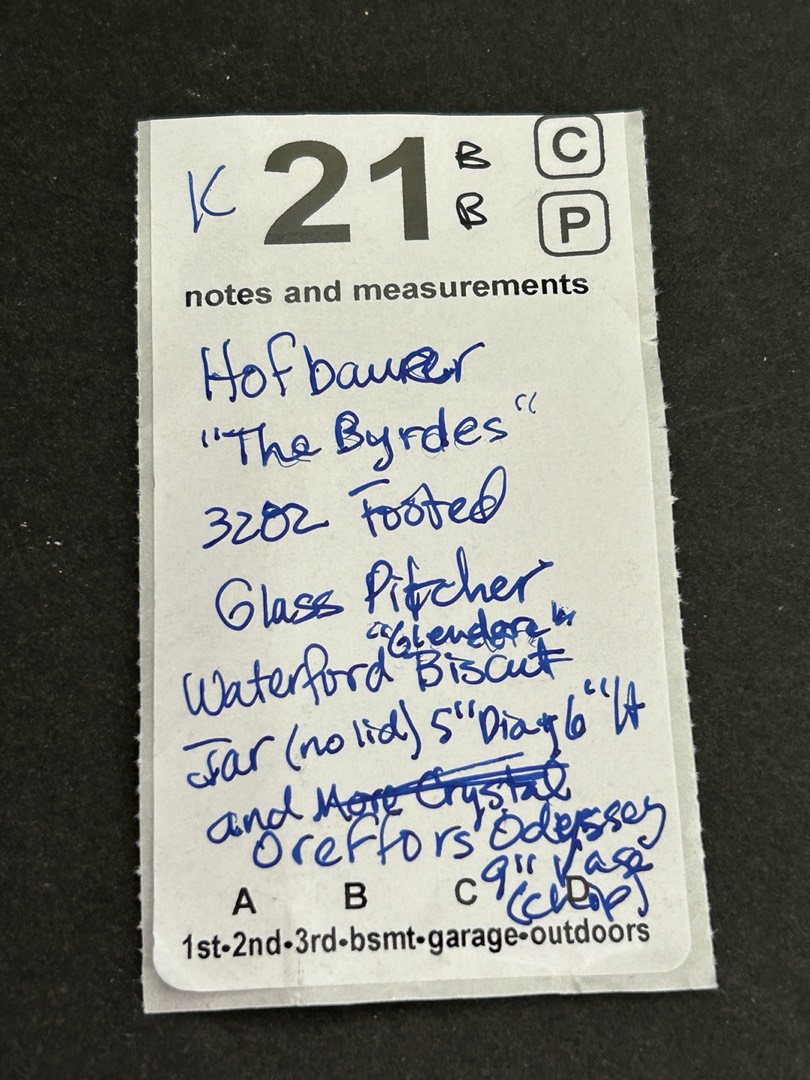 K 21 B C
B P
notes and measurements
Hofbauer
"The Byrdes"
3202 Footed
Glass Pitcher
"Glendore"
Waterford Biscut
Jar (no lid) 5" Dia x 6" H
and More Crystal
Oreffors Odyssey
9" Vase
A B C D (chip)
1st•2nd•3rd•bsmt•garage•outdoors